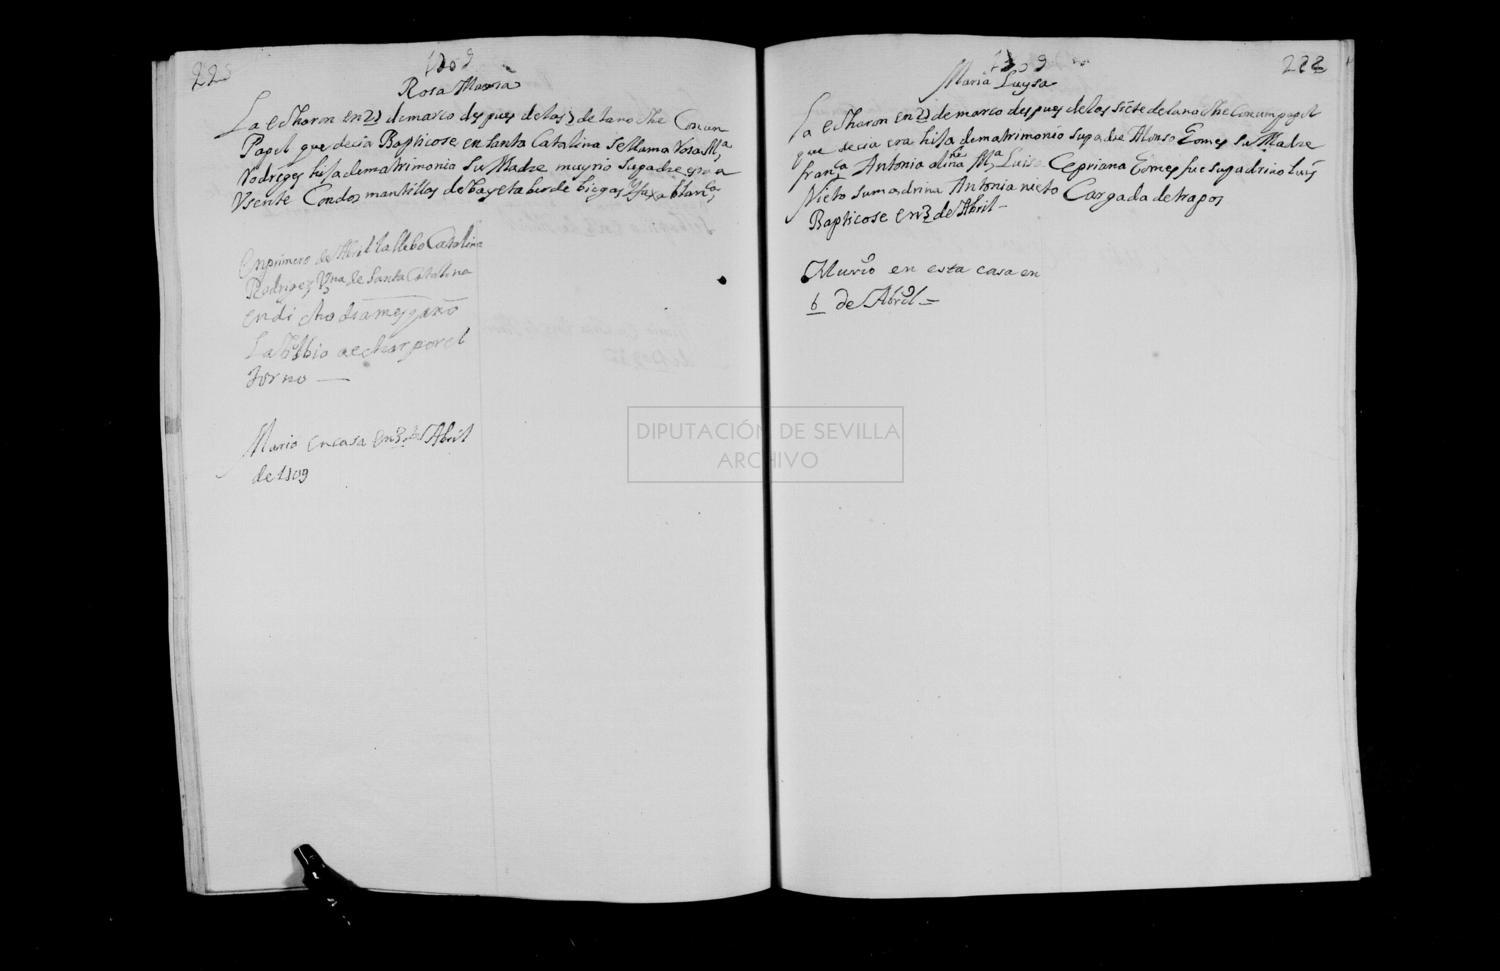 1709
Rosa Maria
La echaron en 27 de marco despues de las 7 de la noche Con un
Papel que decia Bapticose en santa Catalina se llama Rosa Mᵃ
Rodriges hija de matrimonio su Madre murio su padre esta
Vsente Con dos mantillas de bayeta berde biegas blanca
En primero de Abril la llebo Catalina
Rodrigez Vᶻⁿᵃ de Santa Catalina
en dicho dia mes y año
La bolbio a echar por el
torno —
Murio en casa en 3 de Abril
de 1709
222
1709
Maria Luysa
La echaron en 27 de marco despues de las siete de la noche Con un papel
que decia era hija de matrimonio su padre Alonso Gomes su Madre
franᶜᵃ Antonia Mᵃ Luisa Cypriana Gomes fue su padrino Luis
Nieto su madrina Antonia nieto Cargada de trapos
Bapticose en 3 de Abril –
Murio en esta casa en
6 de Abril =
DIPUTACIÓN DE SEVILLA
ARCHIVO